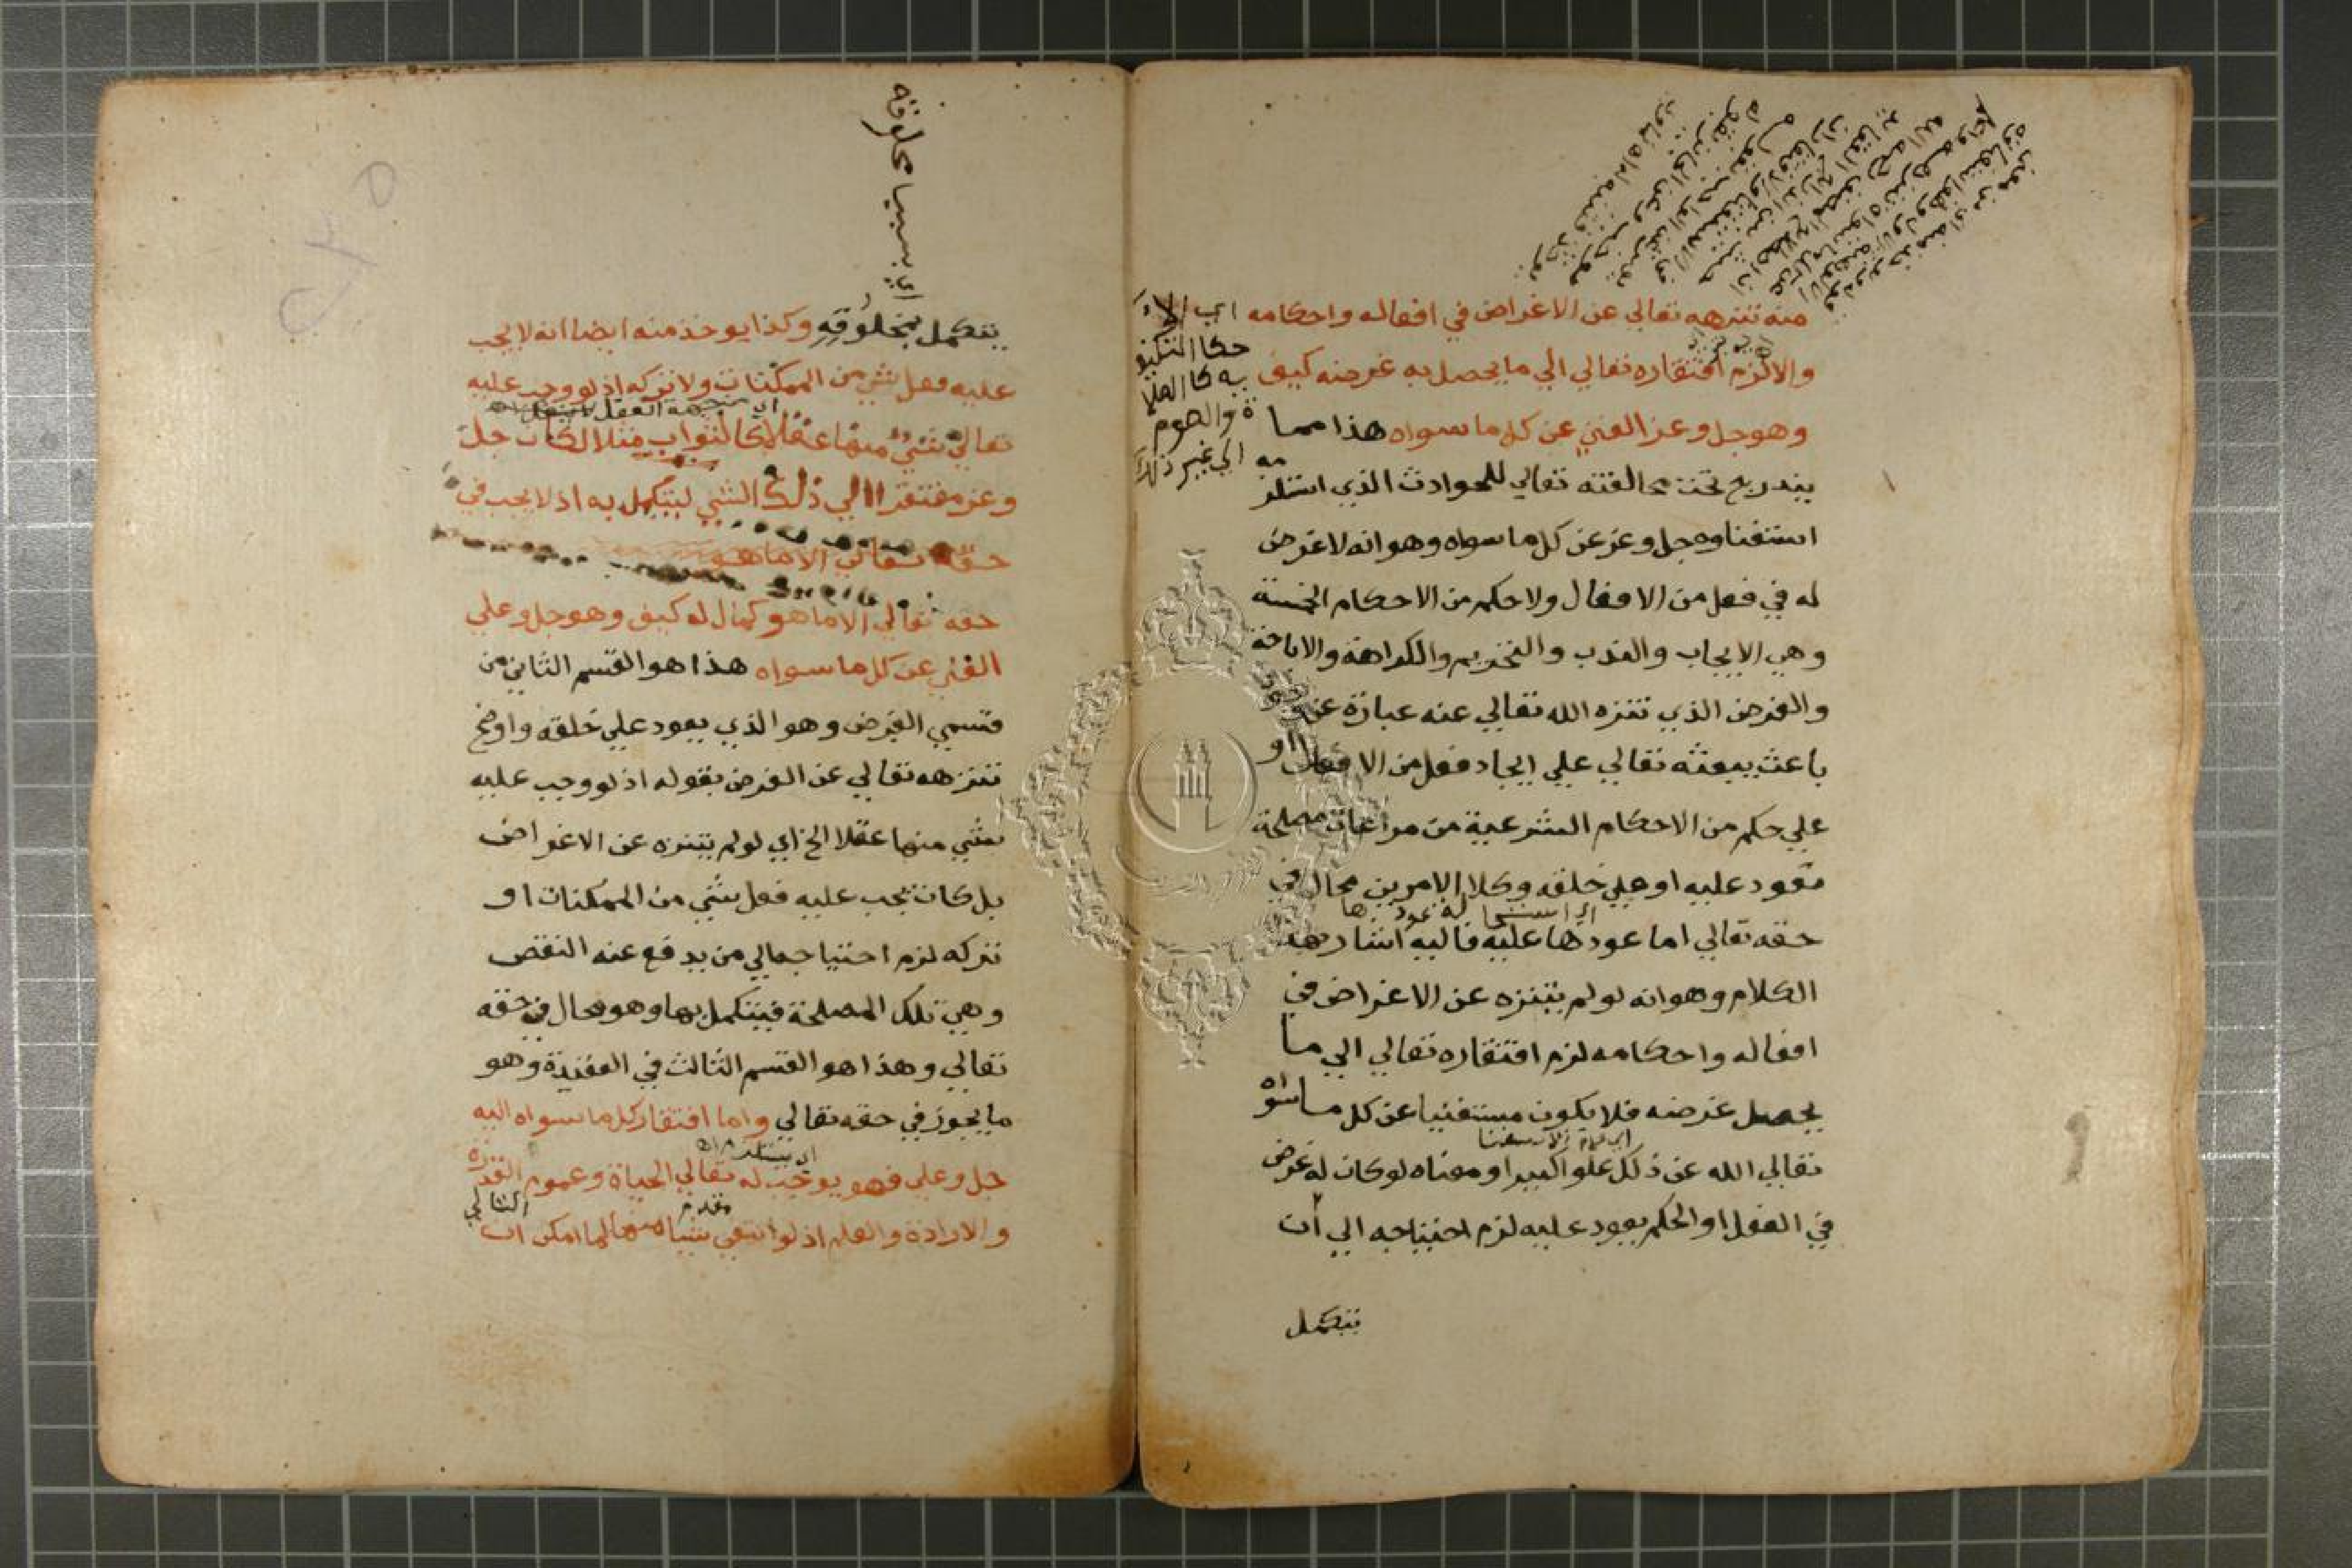 منه تنزهه تعالي عن الاغراض في افعاله واحكامه
والالزم افتقاره تعالي الي ما يحصل به غرضه كيف
وهو جل وعز الغني عن كل ما سواه هذا مما
يندرج تحت مخالفته تعالي للحوادث الذي استلزمه
استغناوه جل وعز عن كل ما سواه وهو انه لا غرض
له في فعل من الافعال ولا حكم من الاحكام الخمسة
وهي الايجاب والندب والتحريم والكراهة والاباحة
والغرض الذي تنزه الله تعالي عنه عبارة عن وجود
باعث يبعثه تعالي علي ايجاد فعل من الافعال او
علي حكم من الاحكام الشرعية من مراعات مصلحة
تعود عليه او علي خلقه وكلا الامرين محال في
حقه تعالي اما عودها عليه فاليه اشار بهذا
الكلام وهو انه لو لم يتنزه عن الاغراض في
افعاله واحكامه لزم افتقاره تعالي الي ما
يحصل غرضه فلا يكون مستغنيا عن كل ما سواه
تعالي الله عن ذلك علوا كبيرا ومعناه لو كان له غرض
في الفعل او الحكم يعود عليه لزم احتياجه الي ان
يتكمل
اي الا
حكا التكليف
يه كا الصلا
ة والصوم
الي غير ذلك
اي سببا مخلوقه
يتكمل بمخلوقه وكذا يوخذ منه ايضا انه لا يجب
عليه فعل شي من الممكنات ولا تركه اذ لو وجب عليه
اي من جهة العقل
تعالي شي منها عقلا كالثواب مثلا لكان جل
وعز مفتقرا الي ذلك الشي ليتكمل به اذ لا يجب في
حقه تعالي الا ما هو
حقه تعالي الا ما هو كمال له كيف وهو جل وعلي
الغني عن كل ما سواه هذا هو القسم الثاني من
قسمي الغرض وهو الذي يعود علي خلقه واوضح
تنزهه تعالي عن الغرض بقوله اذ لو وجب عليه
شي منها عقلا الخ اي لو لم يتنزه عن الاغراض
بل كان يجب عليه فعل شي من الممكنات او
تركه لزم احتياجه الي من يدفع عنه النقص
وهي تلك المصلحة فيتكمل بها وهو محال في حقه
تعالي وهذا هو القسم الثالث في العقيدة وهو
ما يجوز في حقه تعالي واما افتقار كل ما سواه اليه
جل وعلي فهو يوجب له تعالي الحياة وعموم القدرة
مقدم التالي
والارادة والعلم اذ لو انتفي شيا منها لما امكن ان